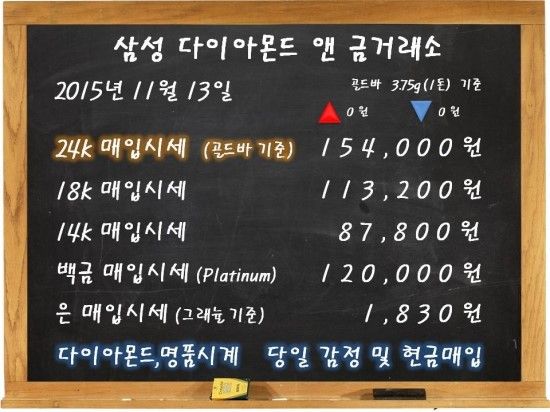 삼성 다이아몬드 앤 금거래소
2015년 11월 13일
골드바 3.75g(1돈) 기준
▲ 0 원 ▼ 0 원
24k 매입시세 (골드바 기준) 154,000원
18k 매입시세 113,200원
14k 매입시세 87,800원
백금 매입시세 (Platinum) 120,000원
은 매입시세 (그래뉼 기준) 1,830원
다이아몬드,명품시계 당일 감정 및 현금매입